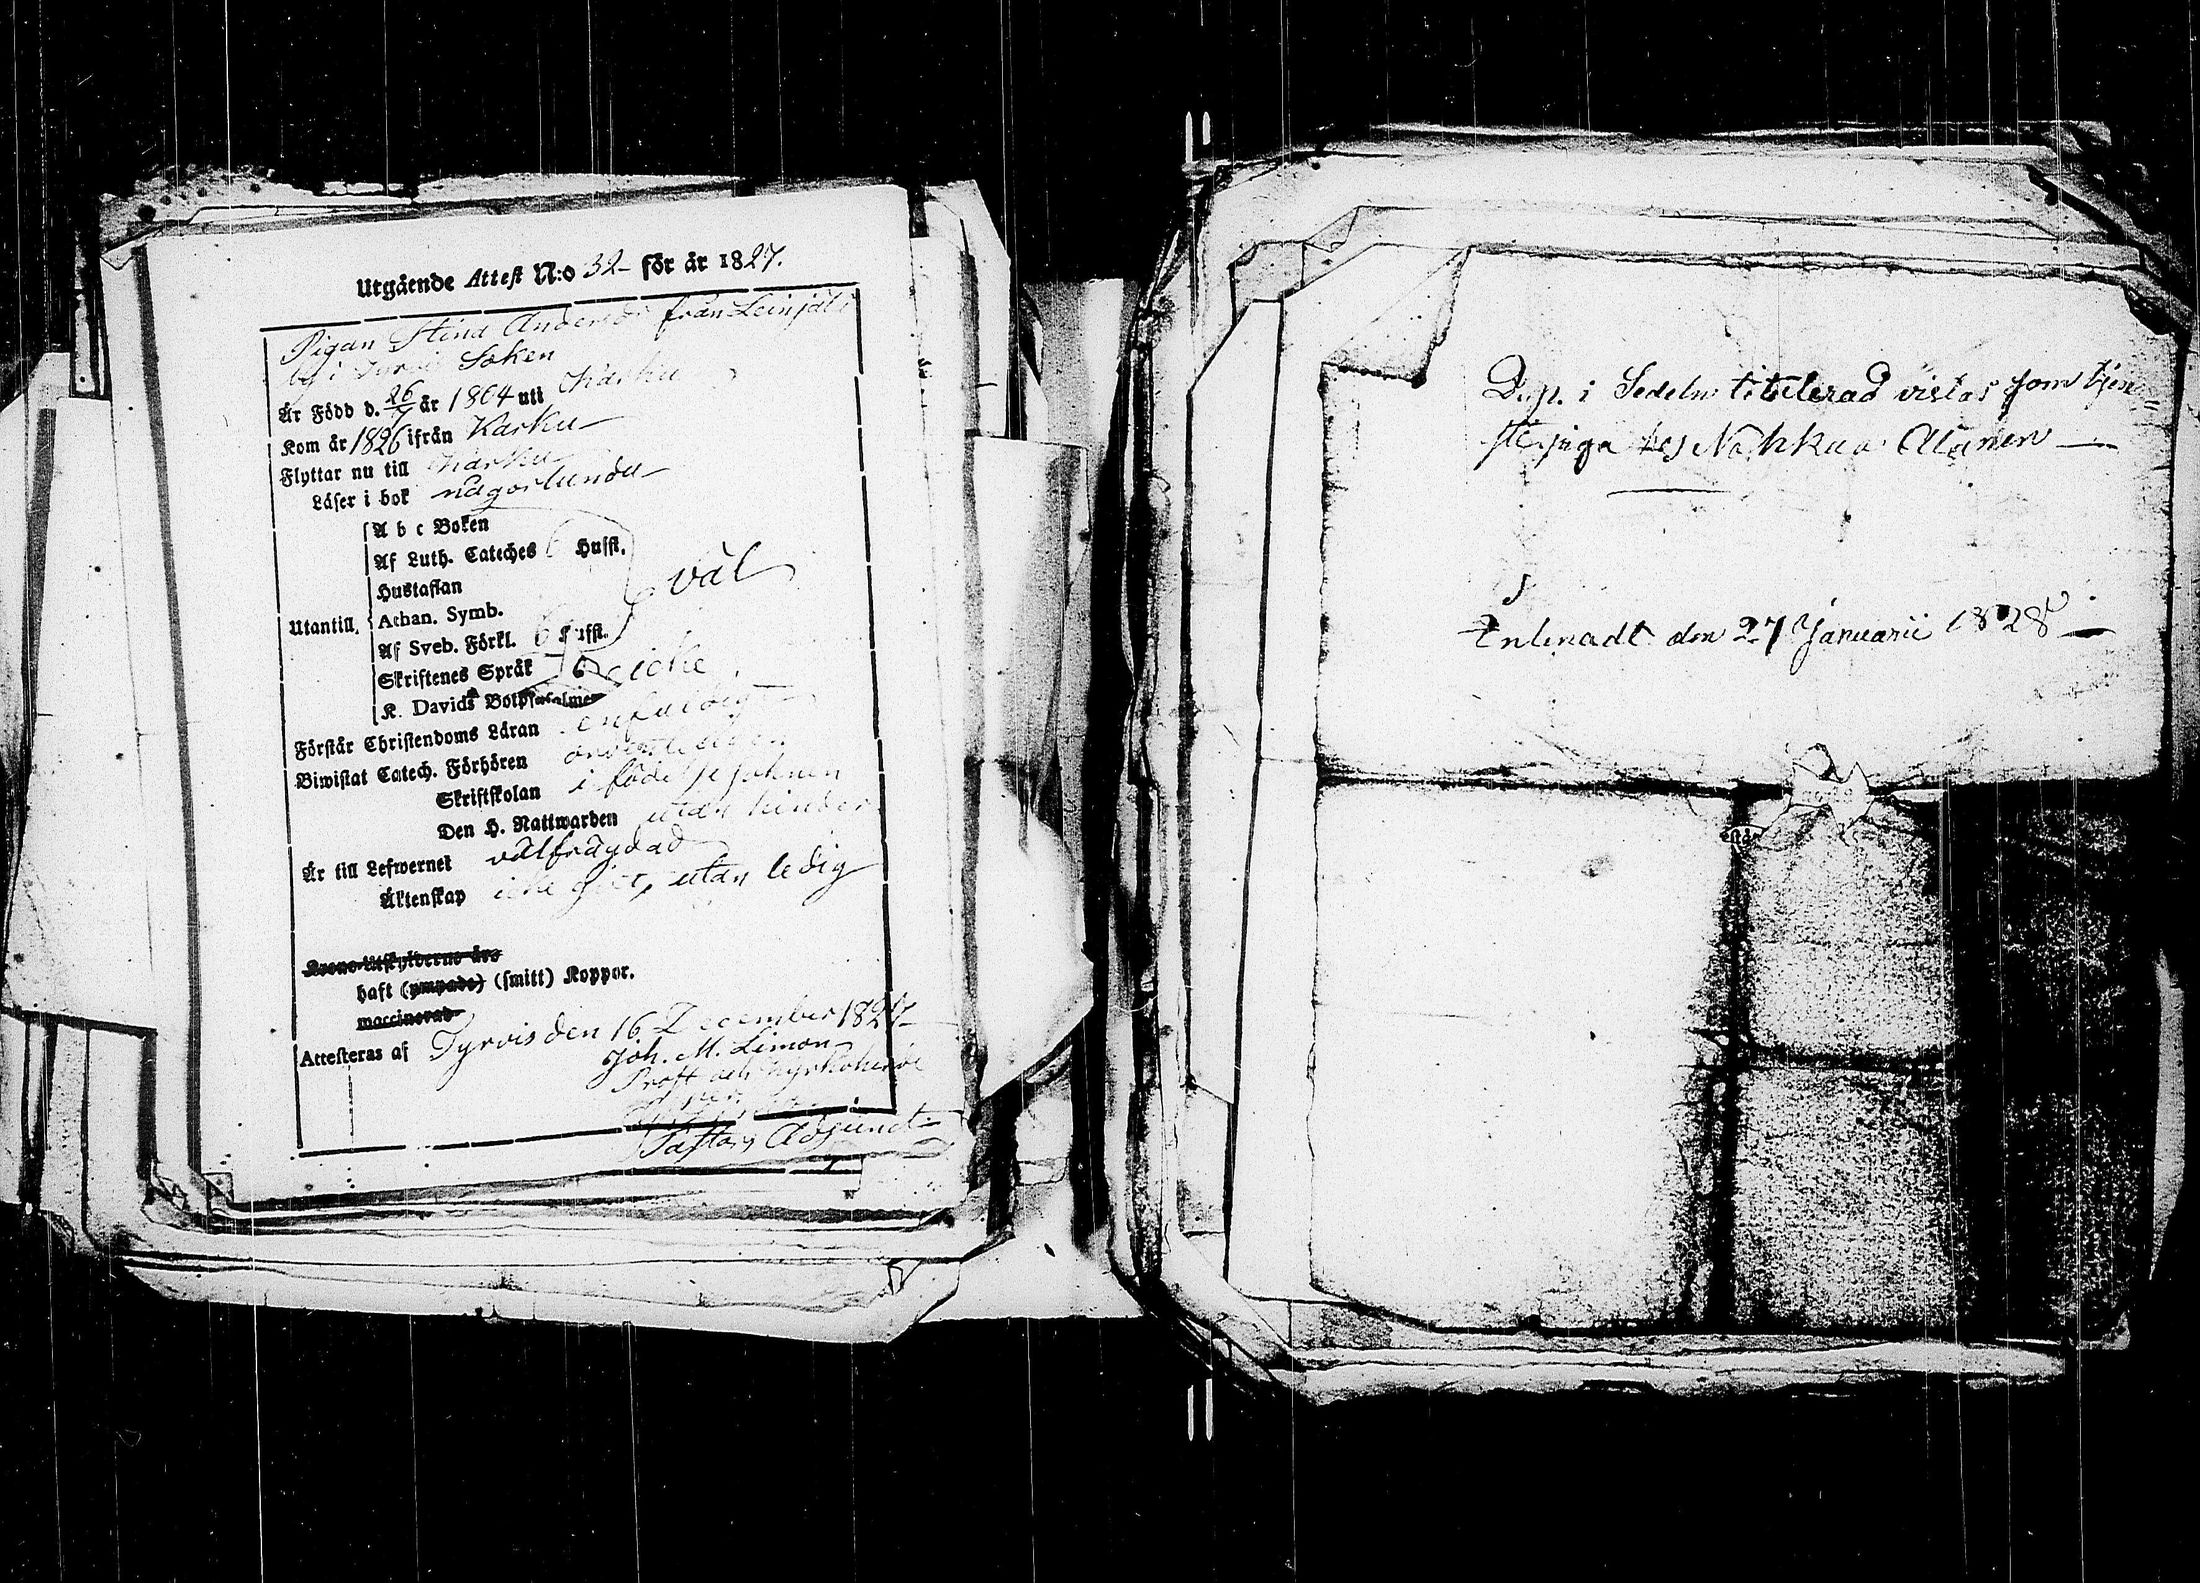 Utgående Attest N:o 32 för år 1827.
Pigan Stina Andersdr från Leinjälä
by i Tyrvis Soken
Är Född d. 26/7 år 1804 uti Karku
Kom år 1826 ifrån Karku
Flyttar nu till Karku
Läser i bok någorlunda
A b c Boken
Af Luth. Cateches 6 Husst.
Hustaflan
väl
Utantill, Athan. Symb.
Af Sveb. Förkl. 6 Husst.
Skriftenes Språk icke
K. Davids Botpsalmer
Förstår Christendoms Läran enfaldig
Biwistat Catech. Förhören ordenteligen
Skriftskolan i födelse soknen
Den H. Nattwarden utan hinder
Är till Lefwernet välfrägdad
Äktenskap icke gift, utan ledig
Krono-Utskylderne års
haft (ympade) (smitt) Koppor.
vaccinerad
Attesteras af Tyrvis den 16 December 1827
Joh. M. Limon
Prost och Kyrkoherde
Pastors Adjunct
i Sedeln titulerad vistas som tjen=
ste piga hos Nohkua Alanen
den 27 Januarii 1828